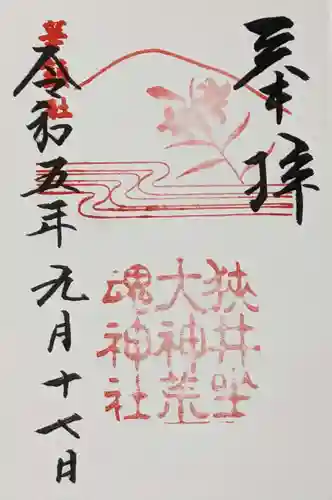 奉拝
狹井坐
大神荒
魂神社
令和五年元月十七日